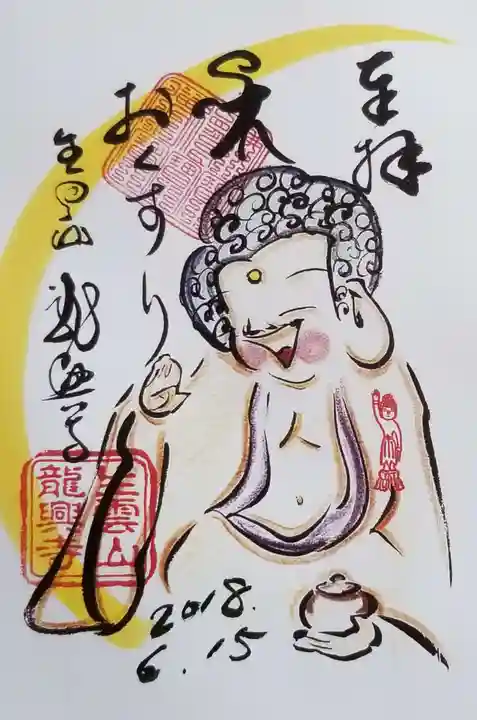 奉拝
笑
おくすり
雲山
龍興寺
雲山
龍興寺
2018.
6.15